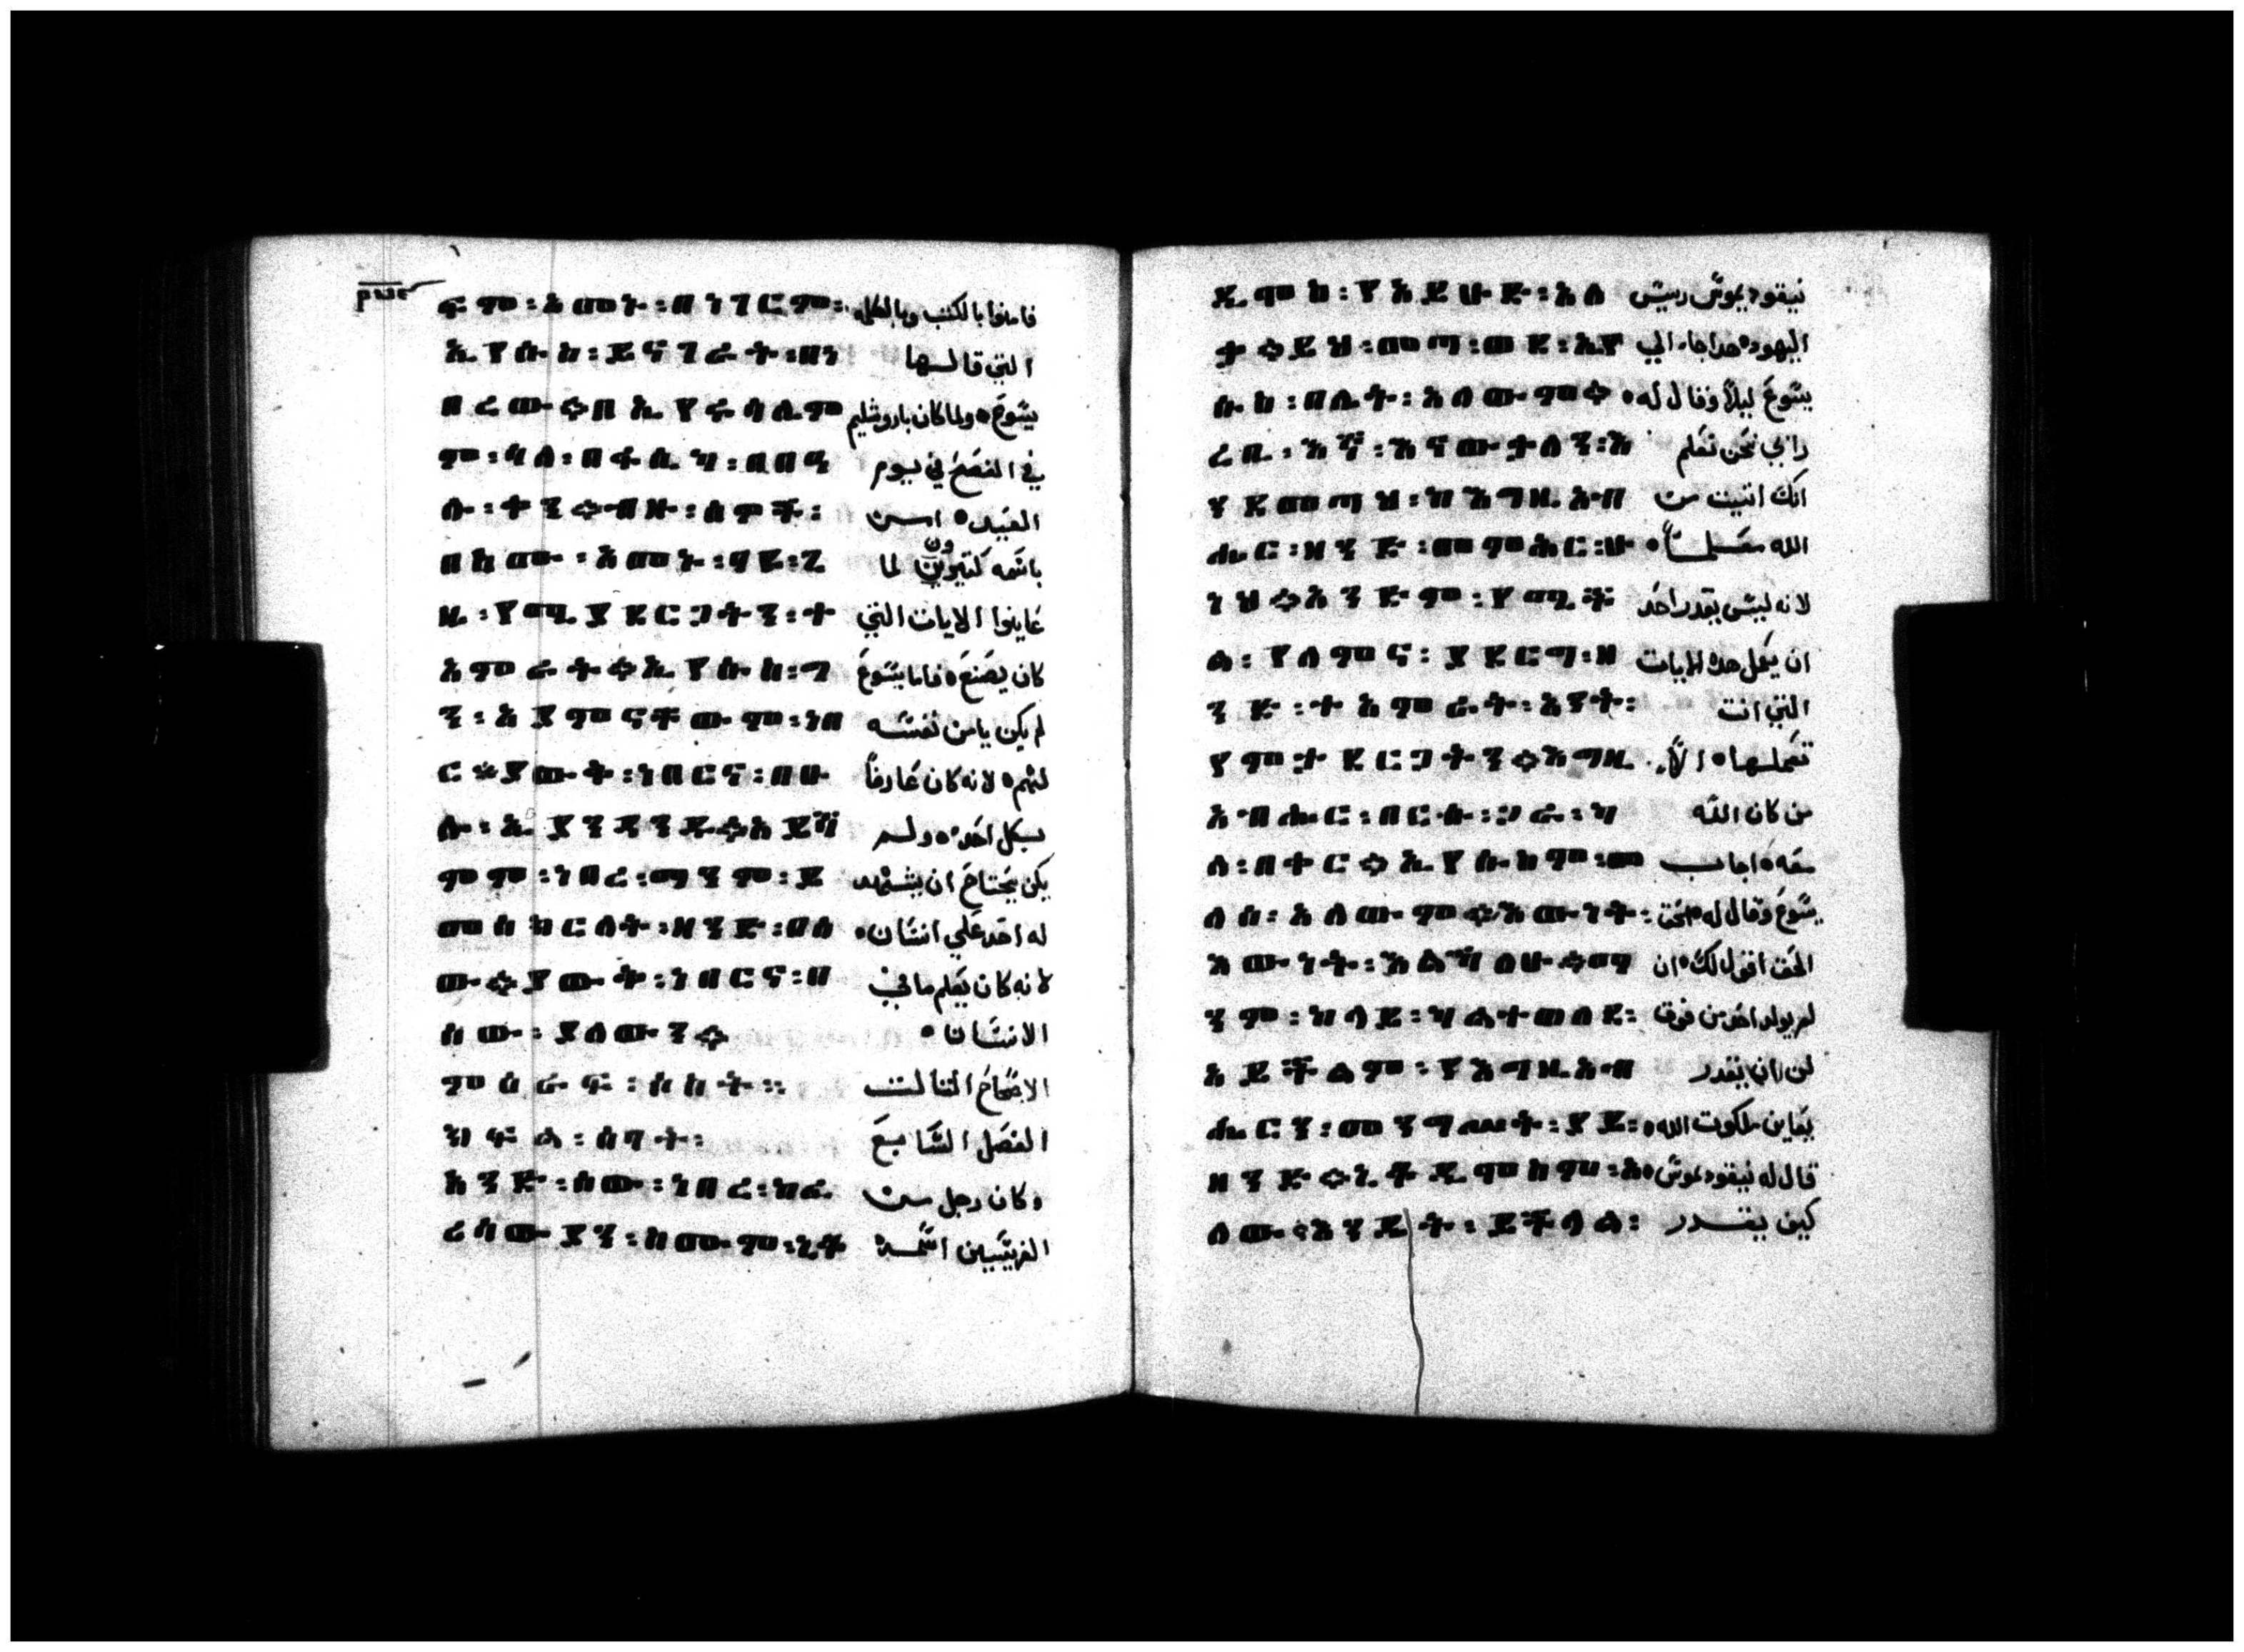 ፍም፡አመኑ፡በነገርም፡ فامنوا بالكتب وبالكلمه
ኢየሱስ፡ይናገራት፡በነ التي قالها
በረው።በኢየሩሳሌም يسوع ۰ ولما كان باروشليم
ም፡ሳለ፡በፋሲካ፡በበዓ في الفصح في يوم
ሉ፡ተን።ብዙ፡ሰዎች፡ العيد ۰ امن
በስሙ፡አመኑ፡ባዩ፡ጊ باسمه كتيرون لما
ዜ፡የሚያደርጋትን፡ተ عاينوا الايات التي
አምራት።ኢየሱስ፡ግ كان يصنع ۰ فاما يسوع
ን፡አያምናቸውም፡ነበ لم يكن يامن نفسه
ር።ያውቅ፡ነበርና፡በሁ لهم ۰ لانه كان عارفاً
ሉ፡ኢያንዳንዱ።አይሻ بكل احد ۰ ولم
ምም፡ነበረ፡ማንም፡ይ يكن يحتاج ان يشهد
መሰክርለት፡ዘንድ፡በሰ له احد علي انسان ۰
ው።ያውቅ፡ነበርና፡በ لانه كان يعلم ما في
ሰው፡ያለውን። الانسان ۰
ምዕራፍ፡ሰስት። الاصحاح التالت
ክፍል፡ሰባት፡ الفصل السابع
አንድ፡ሰው፡ነበረ፡ከፈ وكان رجل من
ረሰውያን፡ስሙም፡ኒቆ الفريسيين اسمه
ዲሞስ፡የአይሁድ፡አለ نيقوديموس ريس
ቃ።ይህ፡መጣ፡ወደ፡ኢየ اليهود ۰ هدا جاء الي
ሱስ፡በሌት፡አለውም። يسوع ليلاً وقال له ۰
ረቢ፡እኛ፡እናውቃለን፡እ رابي نحن نعلم
ንደመጣህ፡ከእግዚአብ انك اتيت من
ሔር፡ዘንድ፡መምህር፡ሁ الله معلماً ۰
ነህ።አንድም፡የሚች لانه ليس يقدر احد
ል፡የለምና፡ያደርግ፡ዘ ان يعمل هده الايات
ንድ፡ተአምራት፡አንተ፡ التي انت
የምታደርጋትን።እግዚ تعملها ۰ الاّ
አብሔር፡በርሱ፡ጋራ፡ካ من كان الله
ለ፡በቀር።ኢየሱስም፡መ معه ۰ اجاب
ለሰ፡አለውም።እውነት፡ يسوع وقال له ۰ الحق
እውነት፡እልሃለሁ።ማ الحق اقول لك ۰ ان
ንም፡ካላይ፡ካልተወለደ፡ لم يولد احد من فوق
አይችልም፡የእግዚአብ لن يقدر
ሔርን፡መንግሥት፡ያይ፡ يعاين ملكوت الله ۰
ዘንድ።ኒቆዲሞስም፡አ قال له نيقوديموس ۰
ለው፡እንዴት፡ይችላል፡ كيف يقدر